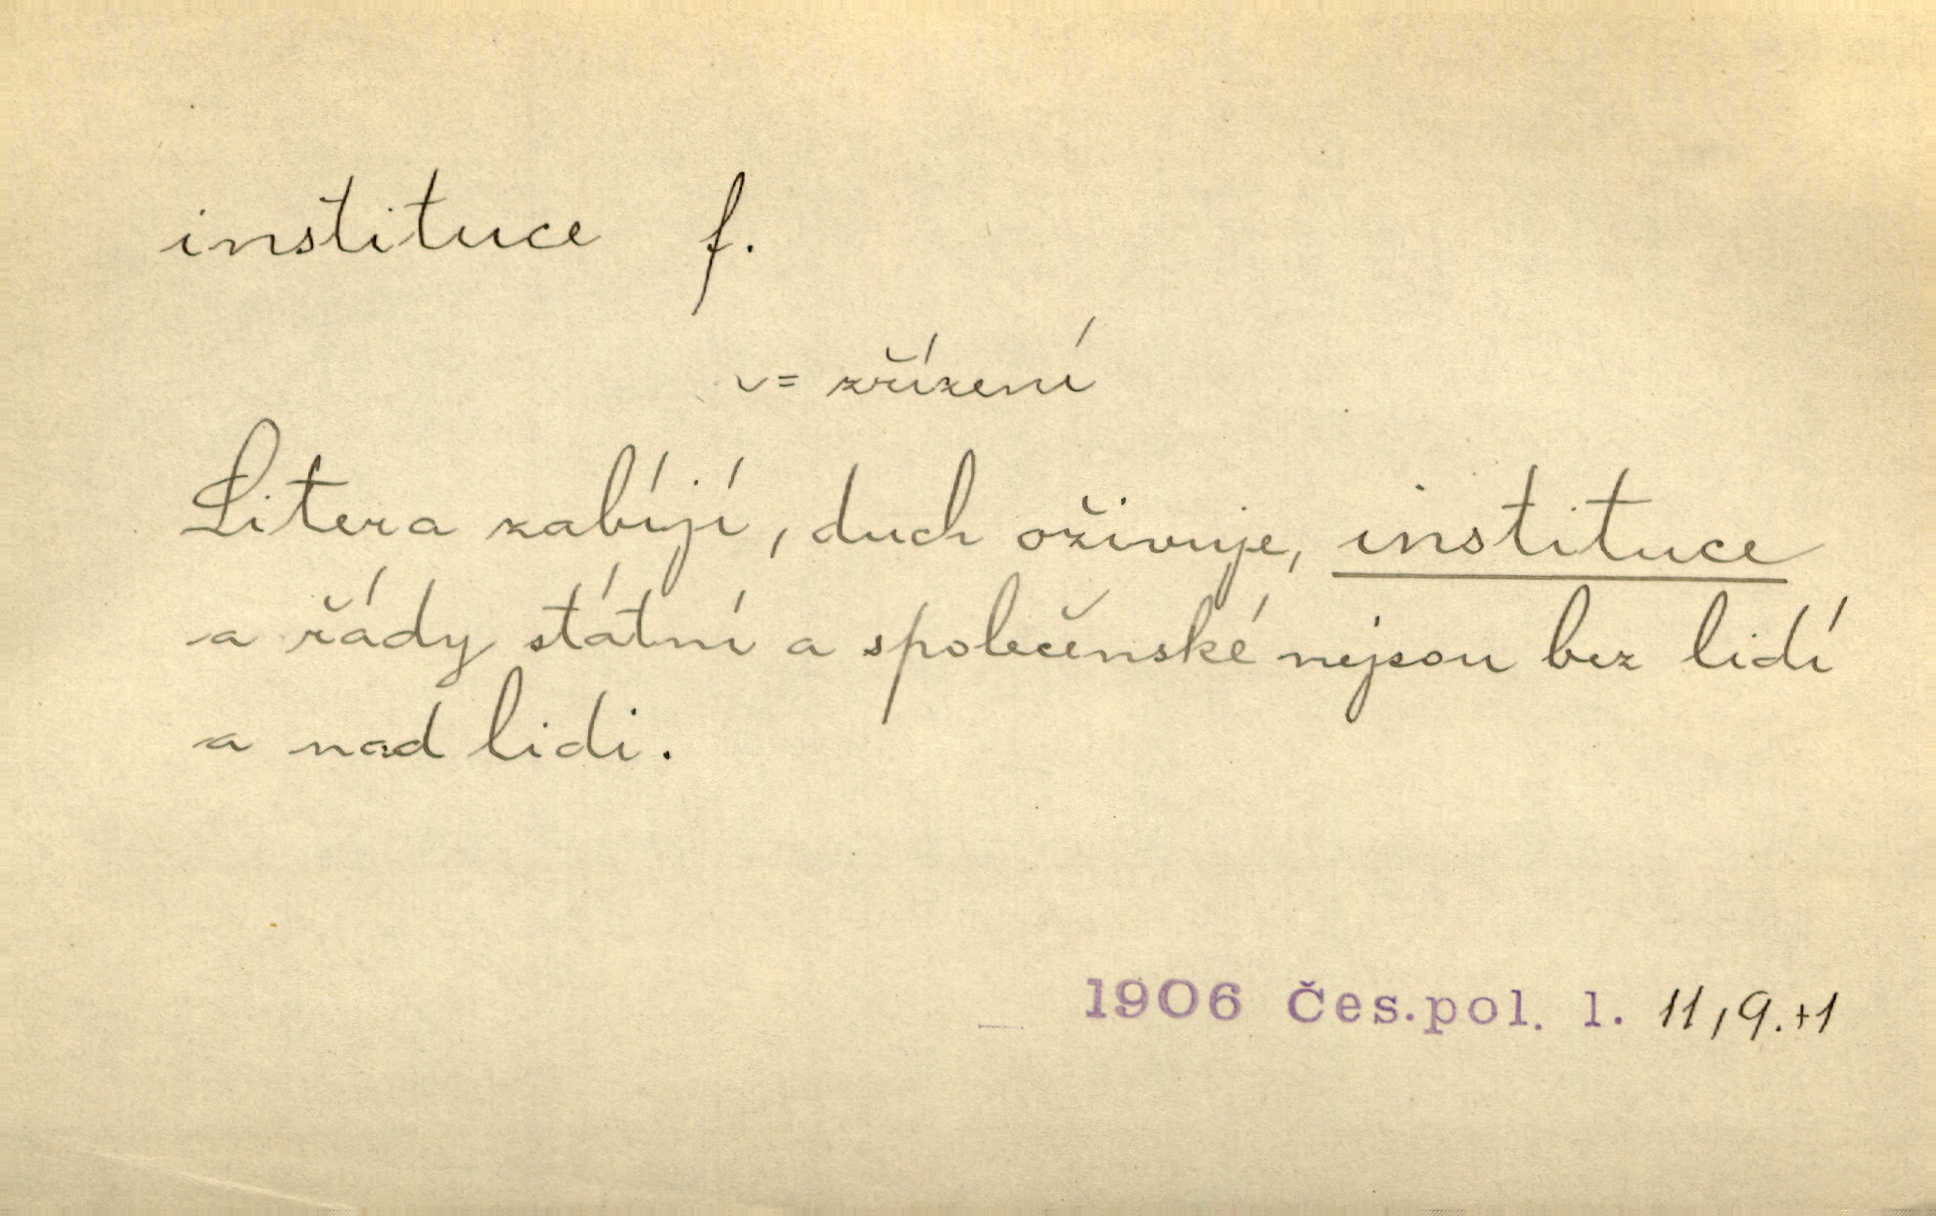 instituce f.
v = zřízení
Litera zabíjí, duch oživuje, instituce
a řády státní a společenské nejsou bez lidí
a nad lidi.
1906 Čes.pol. l. 11, 9. +1